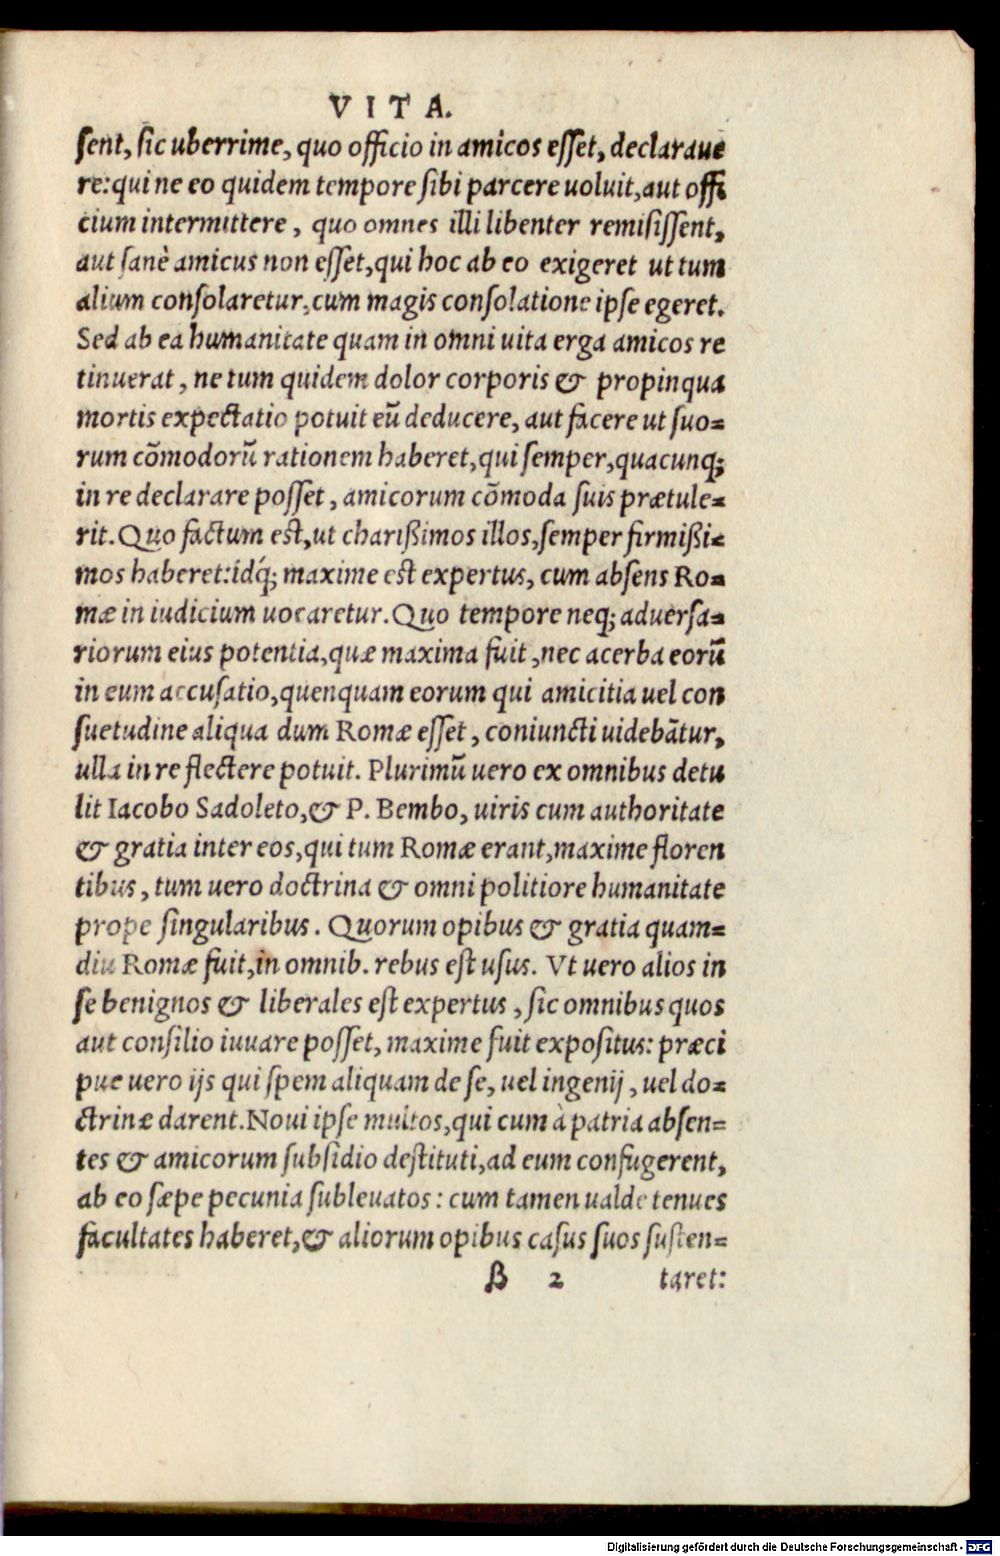 VITA.
sent, sic uberrime, quo officio in amicos esset, declaraue
re: qui ne eo quidem tempore sibi parcere uoluit, aut offi
cium intermittere, quo omnes illi libenter remisissent,
aut sanè amicus non esset, qui hoc ab eo exigeret ut tum
alium consolaretur, cum magis consolatione ipse egeret.
Sed ab ea humanitate quam in omni uita erga amicos re
tinuerat, ne tum quidem dolor corporis & propinqua
mortis expectatio potuit eũ deducere, aut facere ut suo=
rum cõmodorũ rationem haberet, qui semper, quacunq;
in re declarare posset, amicorum cõmoda suis prætule=
rit. Quo factum est, ut charißimos illos, semper firmißi=
mos haberet: idq́; maxime est expertus, cum absens Ro=
mæ in iudicium uocaretur. Quo tempore neq; aduersa=
riorum eius potentia, quæ maxima fuit, nec acerba eorũ
in eum accusatio, quenquam eorum qui amicitia uel con
suetudine aliqua dum Romæ esset, coniuncti uidebãtur,
ulla in re flectere potuit. Plurimũ uero ex omnibus detu
lit Iacobo Sadoleto, & P. Bembo, uiris cum authoritate
& gratia inter eos, qui tum Romæ erant, maxime floren
tibus, tum uero doctrina & omni politiore humanitate
prope singularibus. Quorum opibus & gratia quam=
diu Romæ fuit, in omnib. rebus est usus. Vt uero alios in
se benignos & liberales est expertus, sic omnibus quos
aut consilio iuuare posset, maxime fuit expositus: præci
pue uero ijs qui spem aliquam de se, uel ingenij, uel do=
ctrinæ darent. Noui ipse multos, qui cum à patria absen=
tes & amicorum subsidio destituti, ad eum confugerent,
ab eo sæpe pecunia subleuatos: cum tamen ualde tenues
facultates haberet, & aliorum opibus casus suos susten=
B 2 taret:
Digitalisierung gefördert durch die Deutsche Forschungsgemeinschaft - DFG